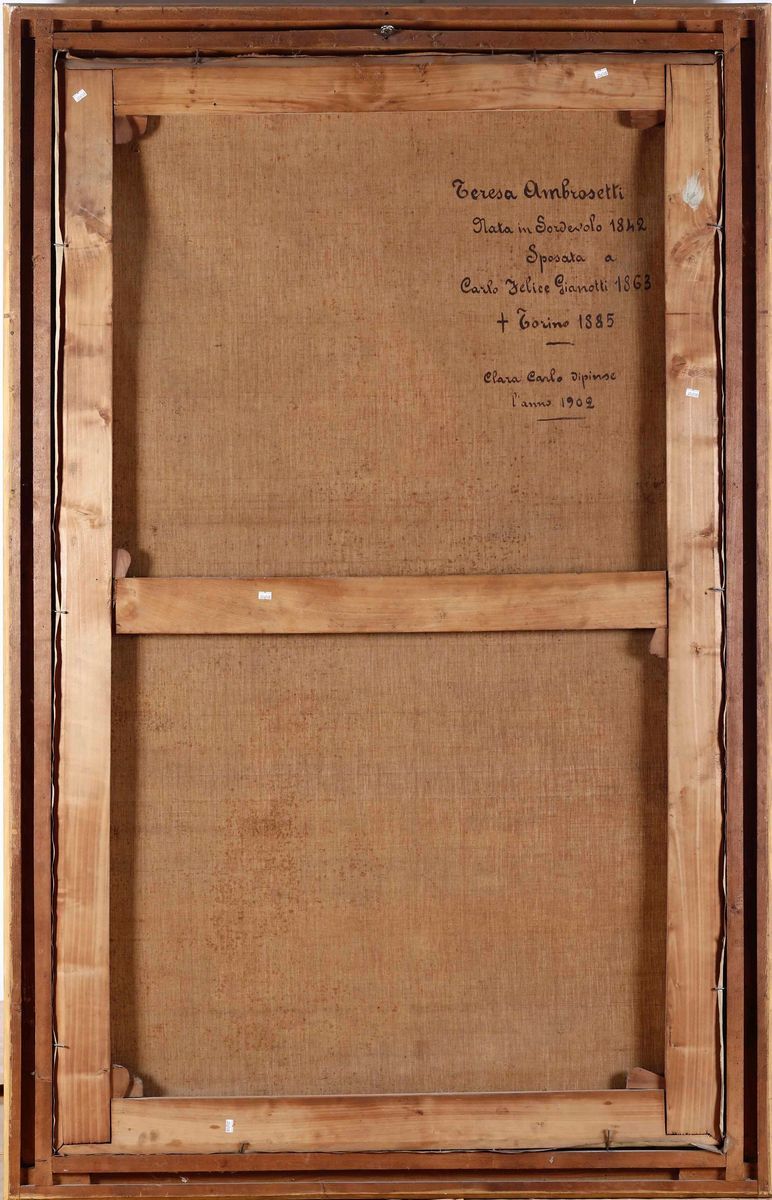 Teresa Ambrosetti
Nata in Sordevolo 1842
Sposata a
Carlo Felice Gianotti 1863
† Torino 1885
Clara Carlo dipinse
l'anno 1902